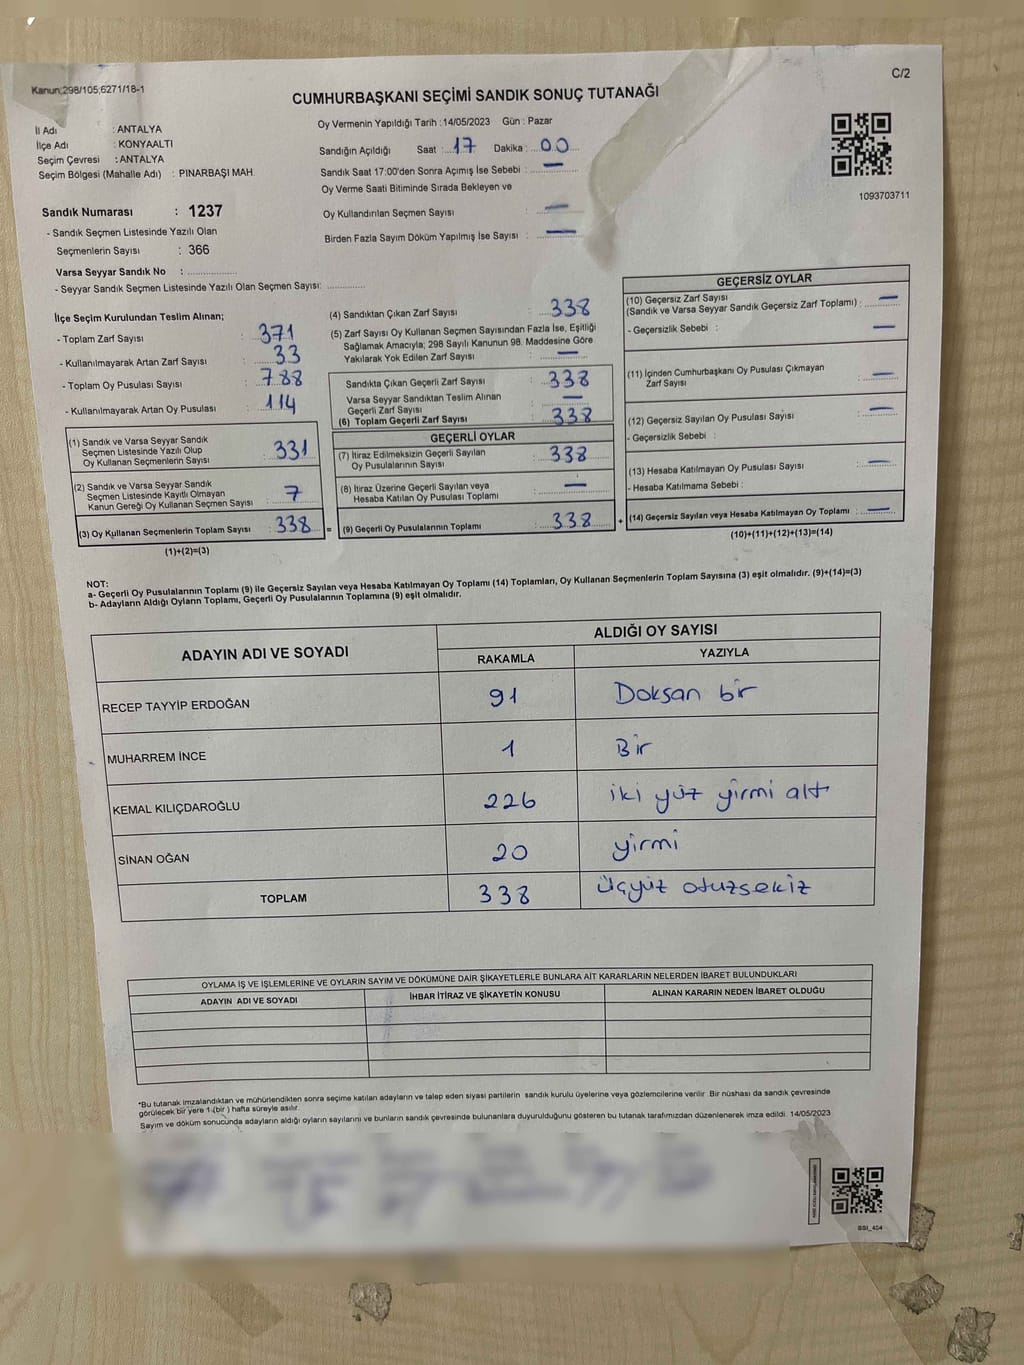 C/2
Kanun;298/105;6271/18-1
CUMHURBAŞKANI SEÇİMİ SANDIK SONUÇ TUTANAĞI
İl Adı : ANTALYA
İlçe Adı : KONYAALTI
Seçim Çevresi : ANTALYA
Seçim Bölgesi (Mahalle Adı) : PINARBAŞI MAH.
Oy Vermenin Yapıldığı Tarih : 14/05/2023 Gün : Pazar
Sandığın Açıldığı Saat : 17 Dakika : 00
Sandık Saat 17:00'den Sonra Açımış İse Sebebi : —
Oy Verme Saati Bitiminde Sırada Bekleyen ve
Oy Kullandırılan Seçmen Sayısı —
Birden Fazla Sayım Döküm Yapılmış İse Sayısı : —
1093703711
Sandık Numarası : 1237
- Sandık Seçmen Listesinde Yazılı Olan
Seçmenlerin Sayısı : 366
Varsa Seyyar Sandık No : ................
- Seyyar Sandık Seçmen Listesinde Yazılı Olan Seçmen Sayısı: ............
İlçe Seçim Kurulundan Teslim Alınan;
- Toplam Zarf Sayısı : 371
- Kullanılmayarak Artan Zarf Sayısı : 33
- Toplam Oy Pusulası Sayısı : 788
- Kullanılmayarak Artan Oy Pusulası : 114
(1) Sandık ve Varsa Seyyar Sandık
Seçmen Listesinde Yazılı Olup
Oy Kullanan Seçmenlerin Sayısı : 331
(2) Sandık ve Varsa Seyyar Sandık
Seçmen Listesinde Kayıtlı Olmayan
Kanun Gereği Oy Kullanan Seçmen Sayısı : 7
(3) Oy Kullanan Seçmenlerin Toplam Sayısı : 338 =
(1)+(2)=(3)
(4) Sandıktan Çıkan Zarf Sayısı : 338
(5) Zarf Sayısı Oy Kullanan Seçmen Sayısından Fazla İse, Eşitliği
Sağlamak Amacıyla; 298 Sayılı Kanunun 98. Maddesine Göre
Yakılarak Yok Edilen Zarf Sayısı : —
Sandıkta Çıkan Geçerli Zarf Sayısı : 338
Varsa Seyyar Sandıktan Teslim Alınan
Geçerli Zarf Sayısı : —
(6) Toplam Geçerli Zarf Sayısı : 338
GEÇERLİ OYLAR
(7) İtiraz Edilmeksizin Geçerli Sayılan
Oy Pusulalarının Sayısı : 338
(8) İtiraz Üzerine Geçerli Sayılan veya
Hesaba Katılan Oy Pusulası Toplamı : —
(9) Geçerli Oy Pusulalarının Toplamı : 338 +
GEÇERSİZ OYLAR
(10) Geçersiz Zarf Sayısı
(Sandık ve Varsa Seyyar Sandık Geçersiz Zarf Toplamı) : —
- Geçersizlik Sebebi : —
(11) İçinden Cumhurbaşkanı Oy Pusulası Çıkmayan
Zarf Sayısı : —
(12) Geçersiz Sayılan Oy Pusulası Sayısı : —
- Geçersizlik Sebebi :
(13) Hesaba Katılmayan Oy Pusulası Sayısı : —
- Hesaba Katılmama Sebebi :
(14) Geçersiz Sayılan veya Hesaba Katılmayan Oy Toplamı : —
(10)+(11)+(12)+(13)=(14)
NOT:
a- Geçerli Oy Pusulalarının Toplamı (9) ile Geçersiz Sayılan veya Hesaba Katılmayan Oy Toplamı (14) Toplamları, Oy Kullanan Seçmenlerin Toplam Sayısına (3) eşit olmalıdır. (9)+(14)=(3)
b- Adayların Aldığı Oyların Toplamı, Geçerli Oy Pusulalarının Toplamına (9) eşit olmalıdır.
ADAYIN ADI VE SOYADI
ALDIĞI OY SAYISI
RAKAMLA YAZIYLA
RECEP TAYYİP ERDOĞAN 91 Doksan bir
MUHARREM İNCE 1 Bir
KEMAL KILIÇDAROĞLU 226 iki yüz yirmi altı
SİNAN OĞAN 20 yirmi
TOPLAM 338 üçyüz otuzsekiz
OYLAMA İŞ VE İŞLEMLERİNE VE OYLARIN SAYIM VE DÖKÜMÜNE DAİR ŞİKAYETLERLE BUNLARA AİT KARARLARIN NELERDEN İBARET BULUNDUKLARI
ADAYIN ADI VE SOYADI İHBAR İTİRAZ VE ŞİKAYETİN KONUSU ALINAN KARARIN NEDEN İBARET OLDUĞU
*Bu tutanak imzalandıktan ve mühürlendikten sonra seçime katılan adayların ve talep eden siyasi partilerin sandık kurulu üyelerine veya gözlemcilerine verilir. Bir nüshası da sandık çevresinde
görülecek bir yere 1 (bir) hafta süreyle asılır.
Sayım ve döküm sonucunda adayların aldığı oyların sayılarını ve bunların sandık çevresinde bulunanlara duyurulduğunu gösteren bu tutanak tarafımızdan düzenlenerek imza edildi. 14/05/2023
SSI_404